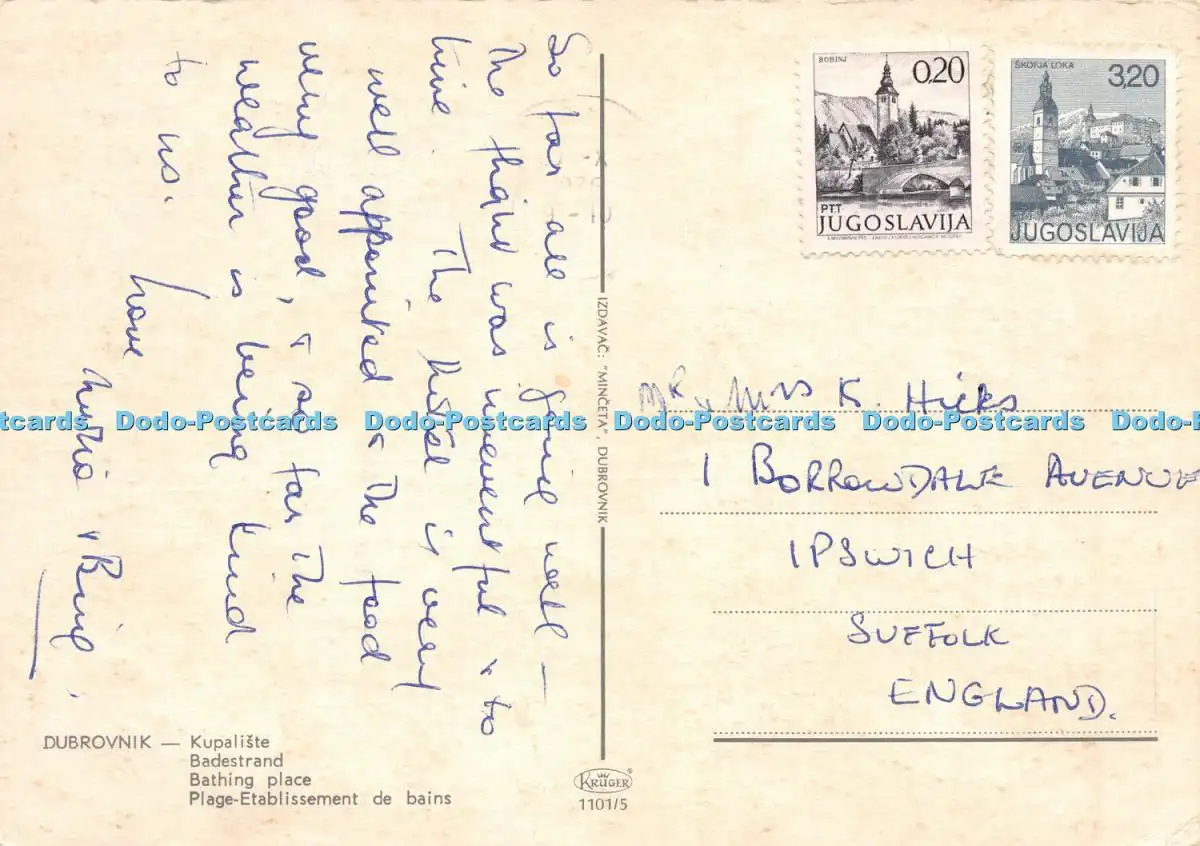 So far all is going well —
the flight was uneventful & to
time. The hotel is very
well appointed & the food
very good, & so far the
weather is being kind
to us.
Love
& Bing.
BOHINJ
0,20
PTT
JUGOSLAVIJA
ŠKOFJA LOKA
3,20
JUGOSLAVIJA
IZDAVAČ: "MINČETA", DUBROVNIK
MR & Mrs K. Hicks
1 BORROWDALE AVENUE
IPSWICH
SUFFOLK
ENGLAND.
Dodo-Postcards Dodo-Postcards Dodo-Postcards Dodo-Postcards Dodo-Postcards Dodo-Postcards
DUBROVNIK — Kupalište
Badestrand
Bathing place
Plage-Etablissement de bains
KRÜGER®
1101/5